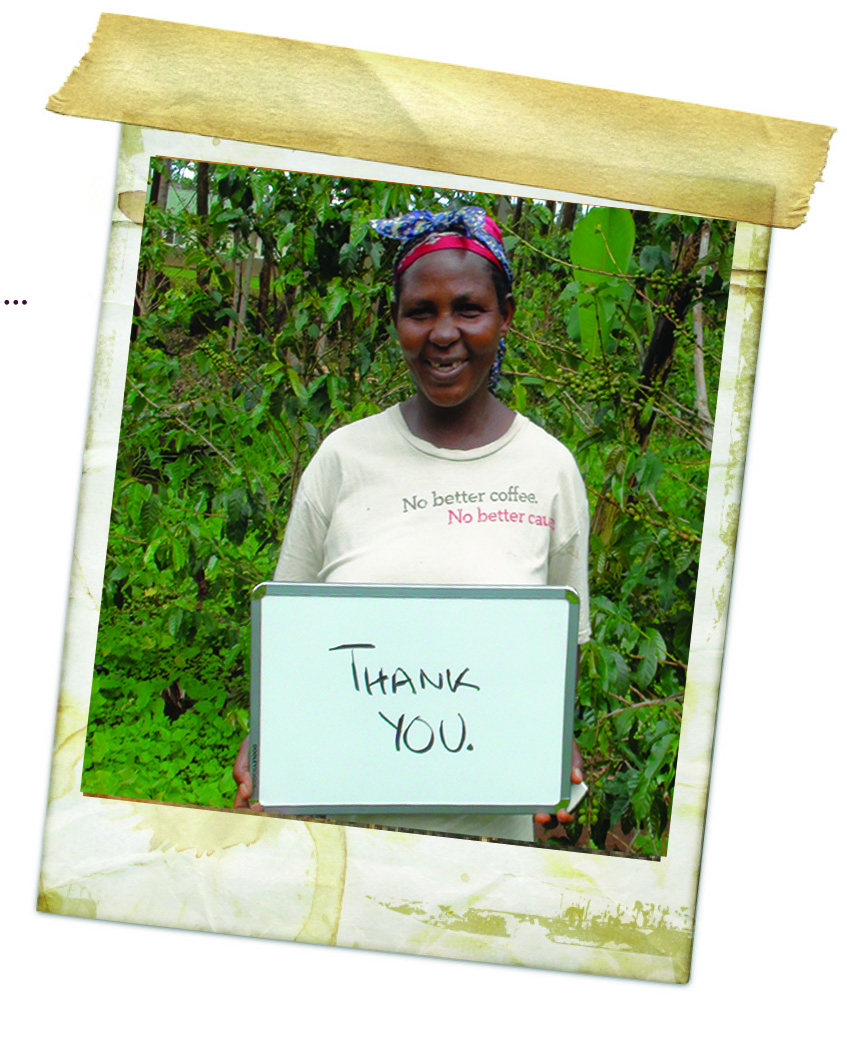 ...
No better coffee.
No better cau
THANK
YOU.